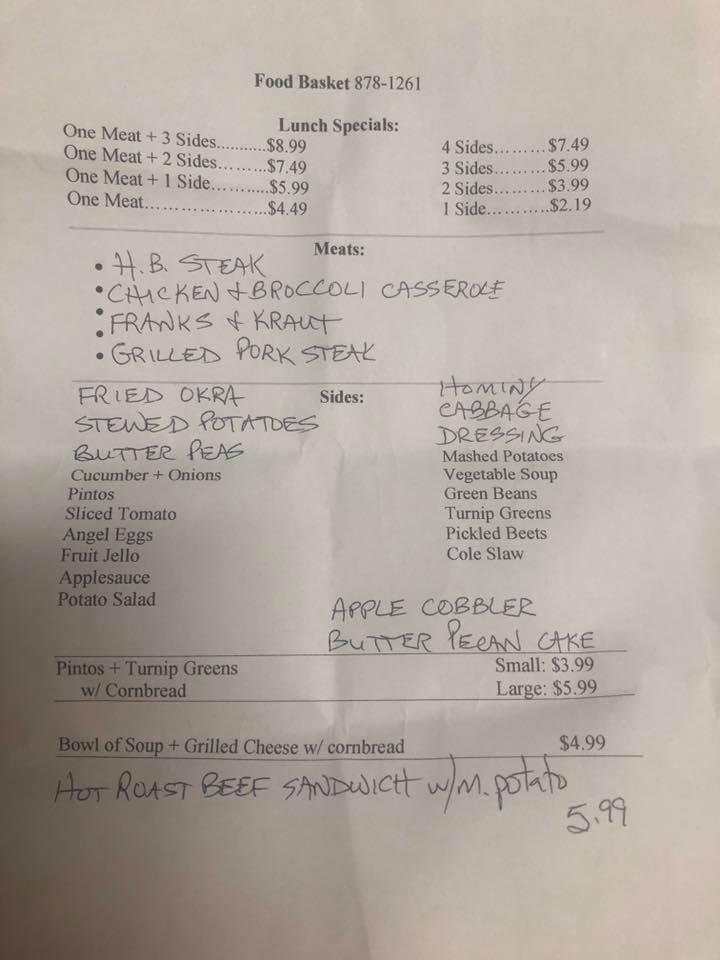 Food Basket 878-1261
Lunch Specials:
One Meat + 3 Sides..........$8.99
One Meat + 2 Sides.........$7.49
One Meat + 1 Side............$5.99
One Meat......................$4.49
4 Sides.........$7.49
3 Sides.........$5.99
2 Sides.........$3.99
1 Side...........$2.19
Meats:
• H.B. STEAK
• CHICKEN + BROCCOLI CASSEROLE
• FRANKS & KRAUT
• GRILLED PORK STEAK
Sides:
FRIED OKRA
STEWED POTATOES
BUTTER PEAS
Cucumber + Onions
Pintos
Sliced Tomato
Angel Eggs
Fruit Jello
Applesauce
Potato Salad
HOMINY
CABBAGE
DRESSING
Mashed Potatoes
Vegetable Soup
Green Beans
Turnip Greens
Pickled Beets
Cole Slaw
APPLE COBBLER
BUTTER PECAN CAKE
Pintos + Turnip Greens
w/ Cornbread
Small: $3.99
Large: $5.99
Bowl of Soup + Grilled Cheese w/ cornbread $4.99
HOT ROAST BEEF SANDWICH w/M. potato
5.99